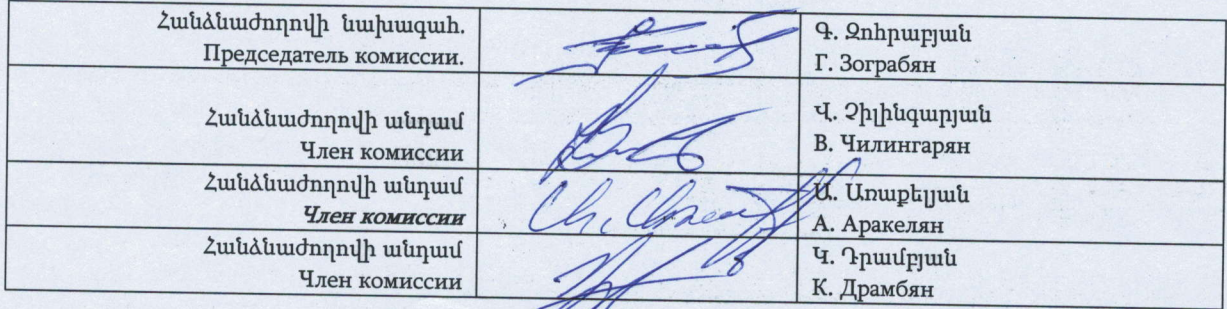 Հանձնաժողովի նախագահ.
Председатель комиссии.
Գ. Զոհրաբյան
Г. Зограбян
Հանձնաժողովի անդամ
Член комиссии
Վ. Չիլինգարյան
В. Чилингарян
Հանձնաժողովի անդամ
Член комиссии
Ա. Առաքելյան
А. Аракелян
Հանձնաժողովի անդամ
Член комиссии
Կ. Դրամբյան
К. Драмбян